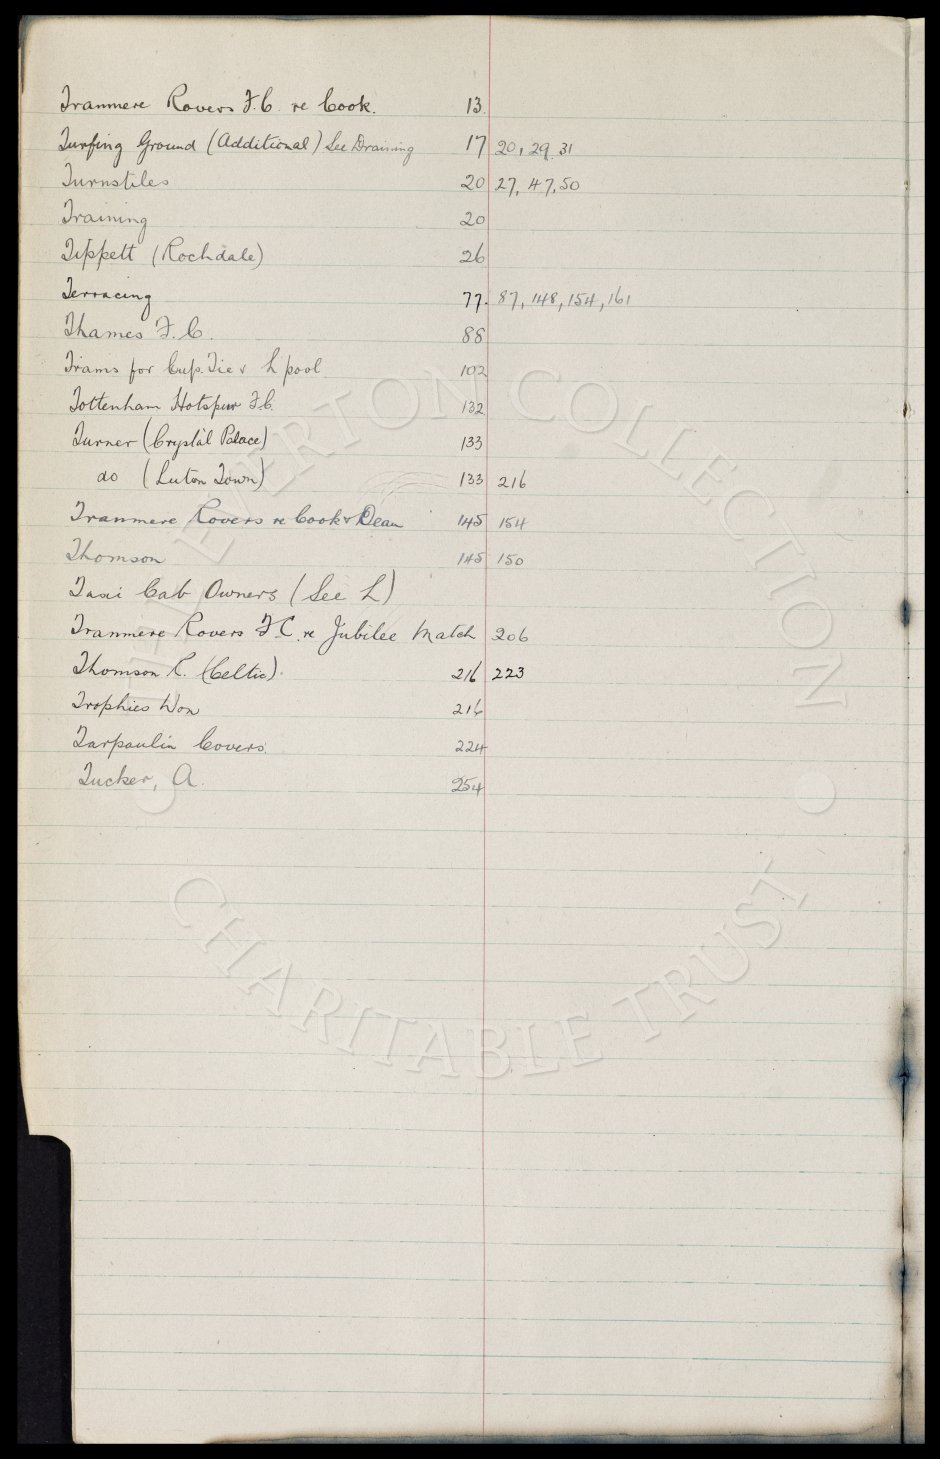 Tranmere Rovers F.C. re Cook. 13.
Turfing Ground (Additional) See Draining 17 20, 29, 31
Turnstiles 20 27, 47, 50
Training 20
Tippett (Rochdale) 26
Terracing 77. 87, 148, 154, 161
Thames F.C. 88
Trams for Cup. Tie v L'pool 102
Tottenham Hotspur F.C. 132
Turner (Crystal Palace) 133
do (Luton Town) 133 216
Tranmere Rovers re Cook & Dean 145 154
Thomson 145 150
Taxi Cab Owners (See L)
Tranmere Rovers F.C. re Jubilee Match 206
Thomson R. (Celtic). 216 223
Trophies Won 216
Tarpaulin Covers. 224
Tucker, A. 254
THE EVERTON COLLECTION
CHARITABLE TRUST